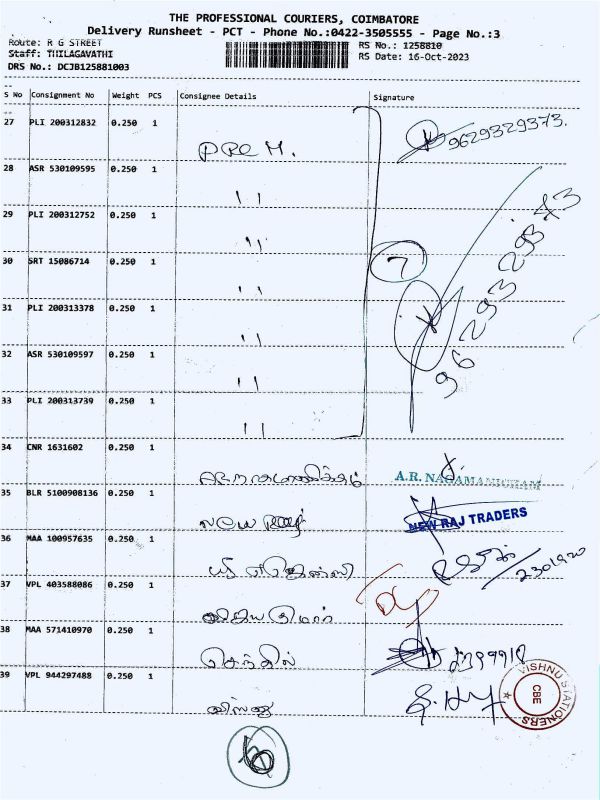 THE PROFESSIONAL COURIERS, COIMBATORE
Delivery Runsheet - PCT - Phone No.:0422-3505555 - Page No.:3
Route: R G STREET
Staff: THILAGAVATHI
DRS No.: DCJB125881003
RS No.: 1258810
RS Date: 16-Oct-2023
S No Consignment No Weight PCS Consignee Details Signature
27 PLI 200312832 0.250 1
PREM. 9629329373.
28 ASR 530109595 0.250 1
11
29 PLI 200312752 0.250 1
11
30 SRT 15086714 0.250 1 7
11
31 PLI 200313378 0.250 1
11
32 ASR 530109597 0.250 1
11
33 PLI 200313739 0.250 1
11
34 CNR 1631602 0.250 1
A.R. NAGAMANICKAM
35 BLR 5100908136 0.250 1
NEW RAJ TRADERS
36 MAA 100957635 0.250 1
37 VPL 403588086 0.250 1
விஜயகுமார்
38 MAA 571410970 0.250 1
செந்தில்
39 VPL 944297488 0.250 1
VISHNU STATIONERS
CBE